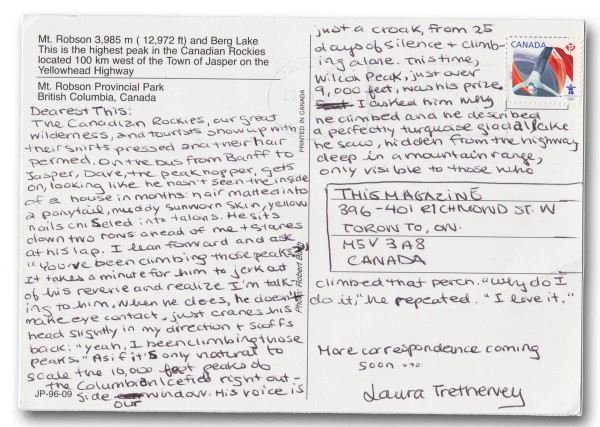 Mt. Robson 3,985 m ( 12,972 ft) and Berg Lake
This is the highest peak in the Canadian Rockies
located 100 km west of the Town of Jasper on the
Yellowhead Highway
Mt. Robson Provincial Park
British Columbia, Canada
Dearest This:
The Canadian Rockies, our great
wilderness, and tourists show up with
their shirts pressed and their hair
permed. On the bus from Banff to
Jasper, Dave, the peak hopper, gets
on, looking like he hasn't seen the inside
of a house in months: hair matted into
a ponytail, muddy sunworn skin, yellow
nails chiseled into talons. He sits
down two rows ahead of me + stares
at his lap. I lean forward and ask
"You've been climbing those peaks?"
It takes a minute for him to jerk out
of his reverie and realize I'm talk-
ing to him. When he does, he doesn't
make eye contact, just cranes his
head slightly in my direction + scoffs
back: "yeah, I been climbing those
peaks." As if it's only natural to
scale the 10,000 feet peaks of
the Columbian Icefield right out-
side our window. His voice is
JP-96-09
PRINTED IN CANADA
Photo: Robert
just a croak, from 25
days of silence + climb-
ing alone. This time,
Wilcox Peak, just over
9,000 feet, was his prize.
I asked him why
he climbed and he described
a perfectly turquoise glacial lake
he saw, hidden from the highway
deep in a mountain range,
only visible to those who
CANADA
P
THIS MAGAZINE
396-401 RICHMOND ST. W
TORONTO, ON.
M5V 3A8
CANADA
climbed that perch. "Why do I
do it," he repeated. "I love it."
More correspondence coming
soon ...
Laura Trethewey